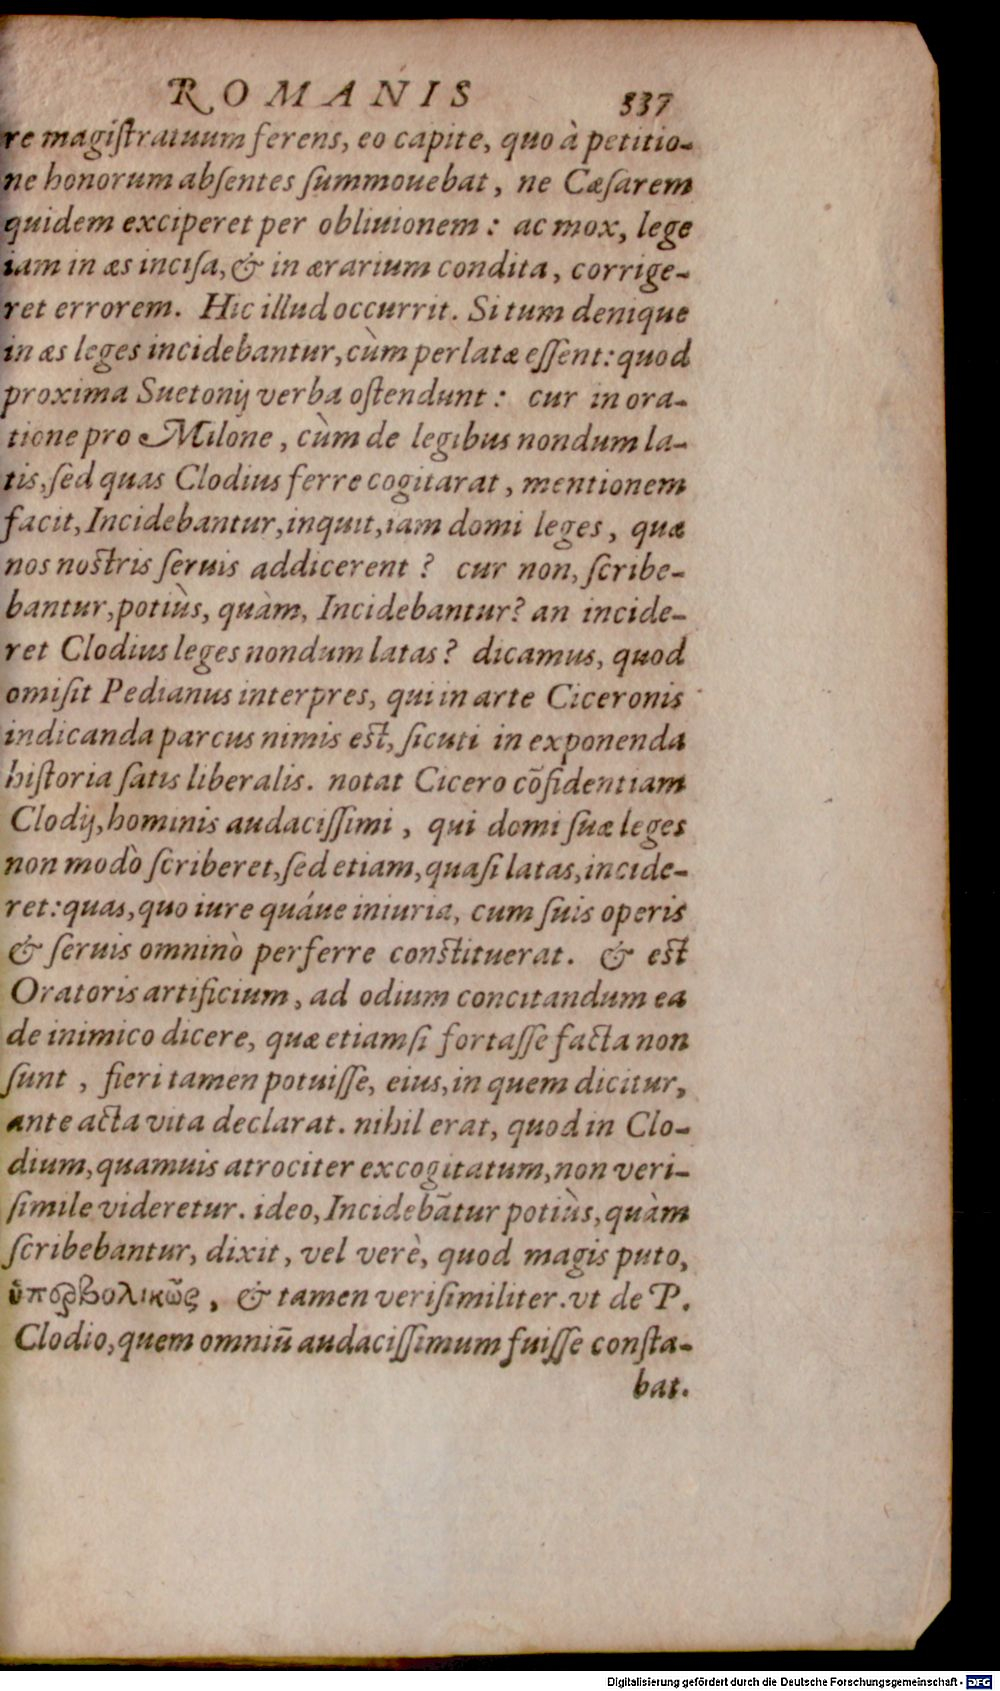 ROMANIS 337
re magiſtratuum ferens, eo capite, quo à petitio-
ne honorum abſentes ſummouebat, ne Cæſarem
quidem exciperet per obliuionem: ac mox, lege
iam in æs inciſa, & in ærarium condita, corrige-
ret errorem. Hic illud occurrit. Si tum denique
in æs leges incidebantur, cùm perlatæ eſſent: quod
proxima Suetonij verba oſtendunt: cur in ora-
tione pro Milone, cùm de legibus nondum la-
tis, ſed quas Clodius ferre cogitarat, mentionem
facit, Incidebantur, inquit, iam domi leges, quæ
nos noſtris ſeruis addicerent? cur non, ſcribe-
bantur, potiùs, quàm, Incidebantur? an incide-
ret Clodius leges nondum latas? dicamus, quod
omiſit Pedianus interpres, qui in arte Ciceronis
indicanda parcus nimis eſt, ſicuti in exponenda
hiſtoria ſatis liberalis. notat Cicero cõfidentiam
Clodij, hominis audaciſſimi, qui domi ſuæ leges
non modò ſcriberet, ſed etiam, quaſi latas, incide-
ret: quas, quo iure quáue iniuria, cum ſuis operis
& ſeruis omninò perferre conſtituerat. & eſt
Oratoris artificium, ad odium concitandum ea
de inimico dicere, quæ etiamſi fortaſſe facta non
ſunt, fieri tamen potuiſſe, eius, in quem dicitur,
ante acta vita declarat. nihil erat, quod in Clo-
dium, quamuis atrociter excogitatum, non veri-
ſimile videretur. ideo, Incidebãtur potiùs, quàm
ſcribebantur, dixit, vel verè, quod magis puto,
ὑπερβολικῶς, & tamen veriſimiliter. vt de P.
Clodio, quem omniũ audaciſſimum fuiſſe conſta-
bat.
Digitalisierung gefördert durch die Deutsche Forschungsgemeinschaft - DFG